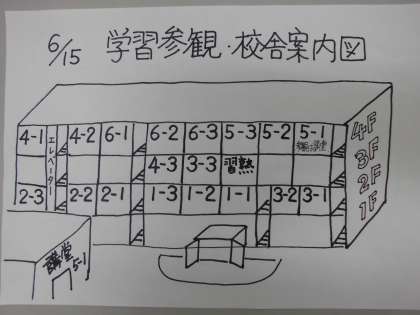 6/15 学習参観・校舎案内図
4-1 エレベーター 4-2 6-1 6-2 6-3 5-3 5-2 5-1 4F
4-3 3-3 習熟 3F
2-3 2-2 2-1 1-3 1-2 1-1 3-2 3-1 2F
1F
講堂
5-1